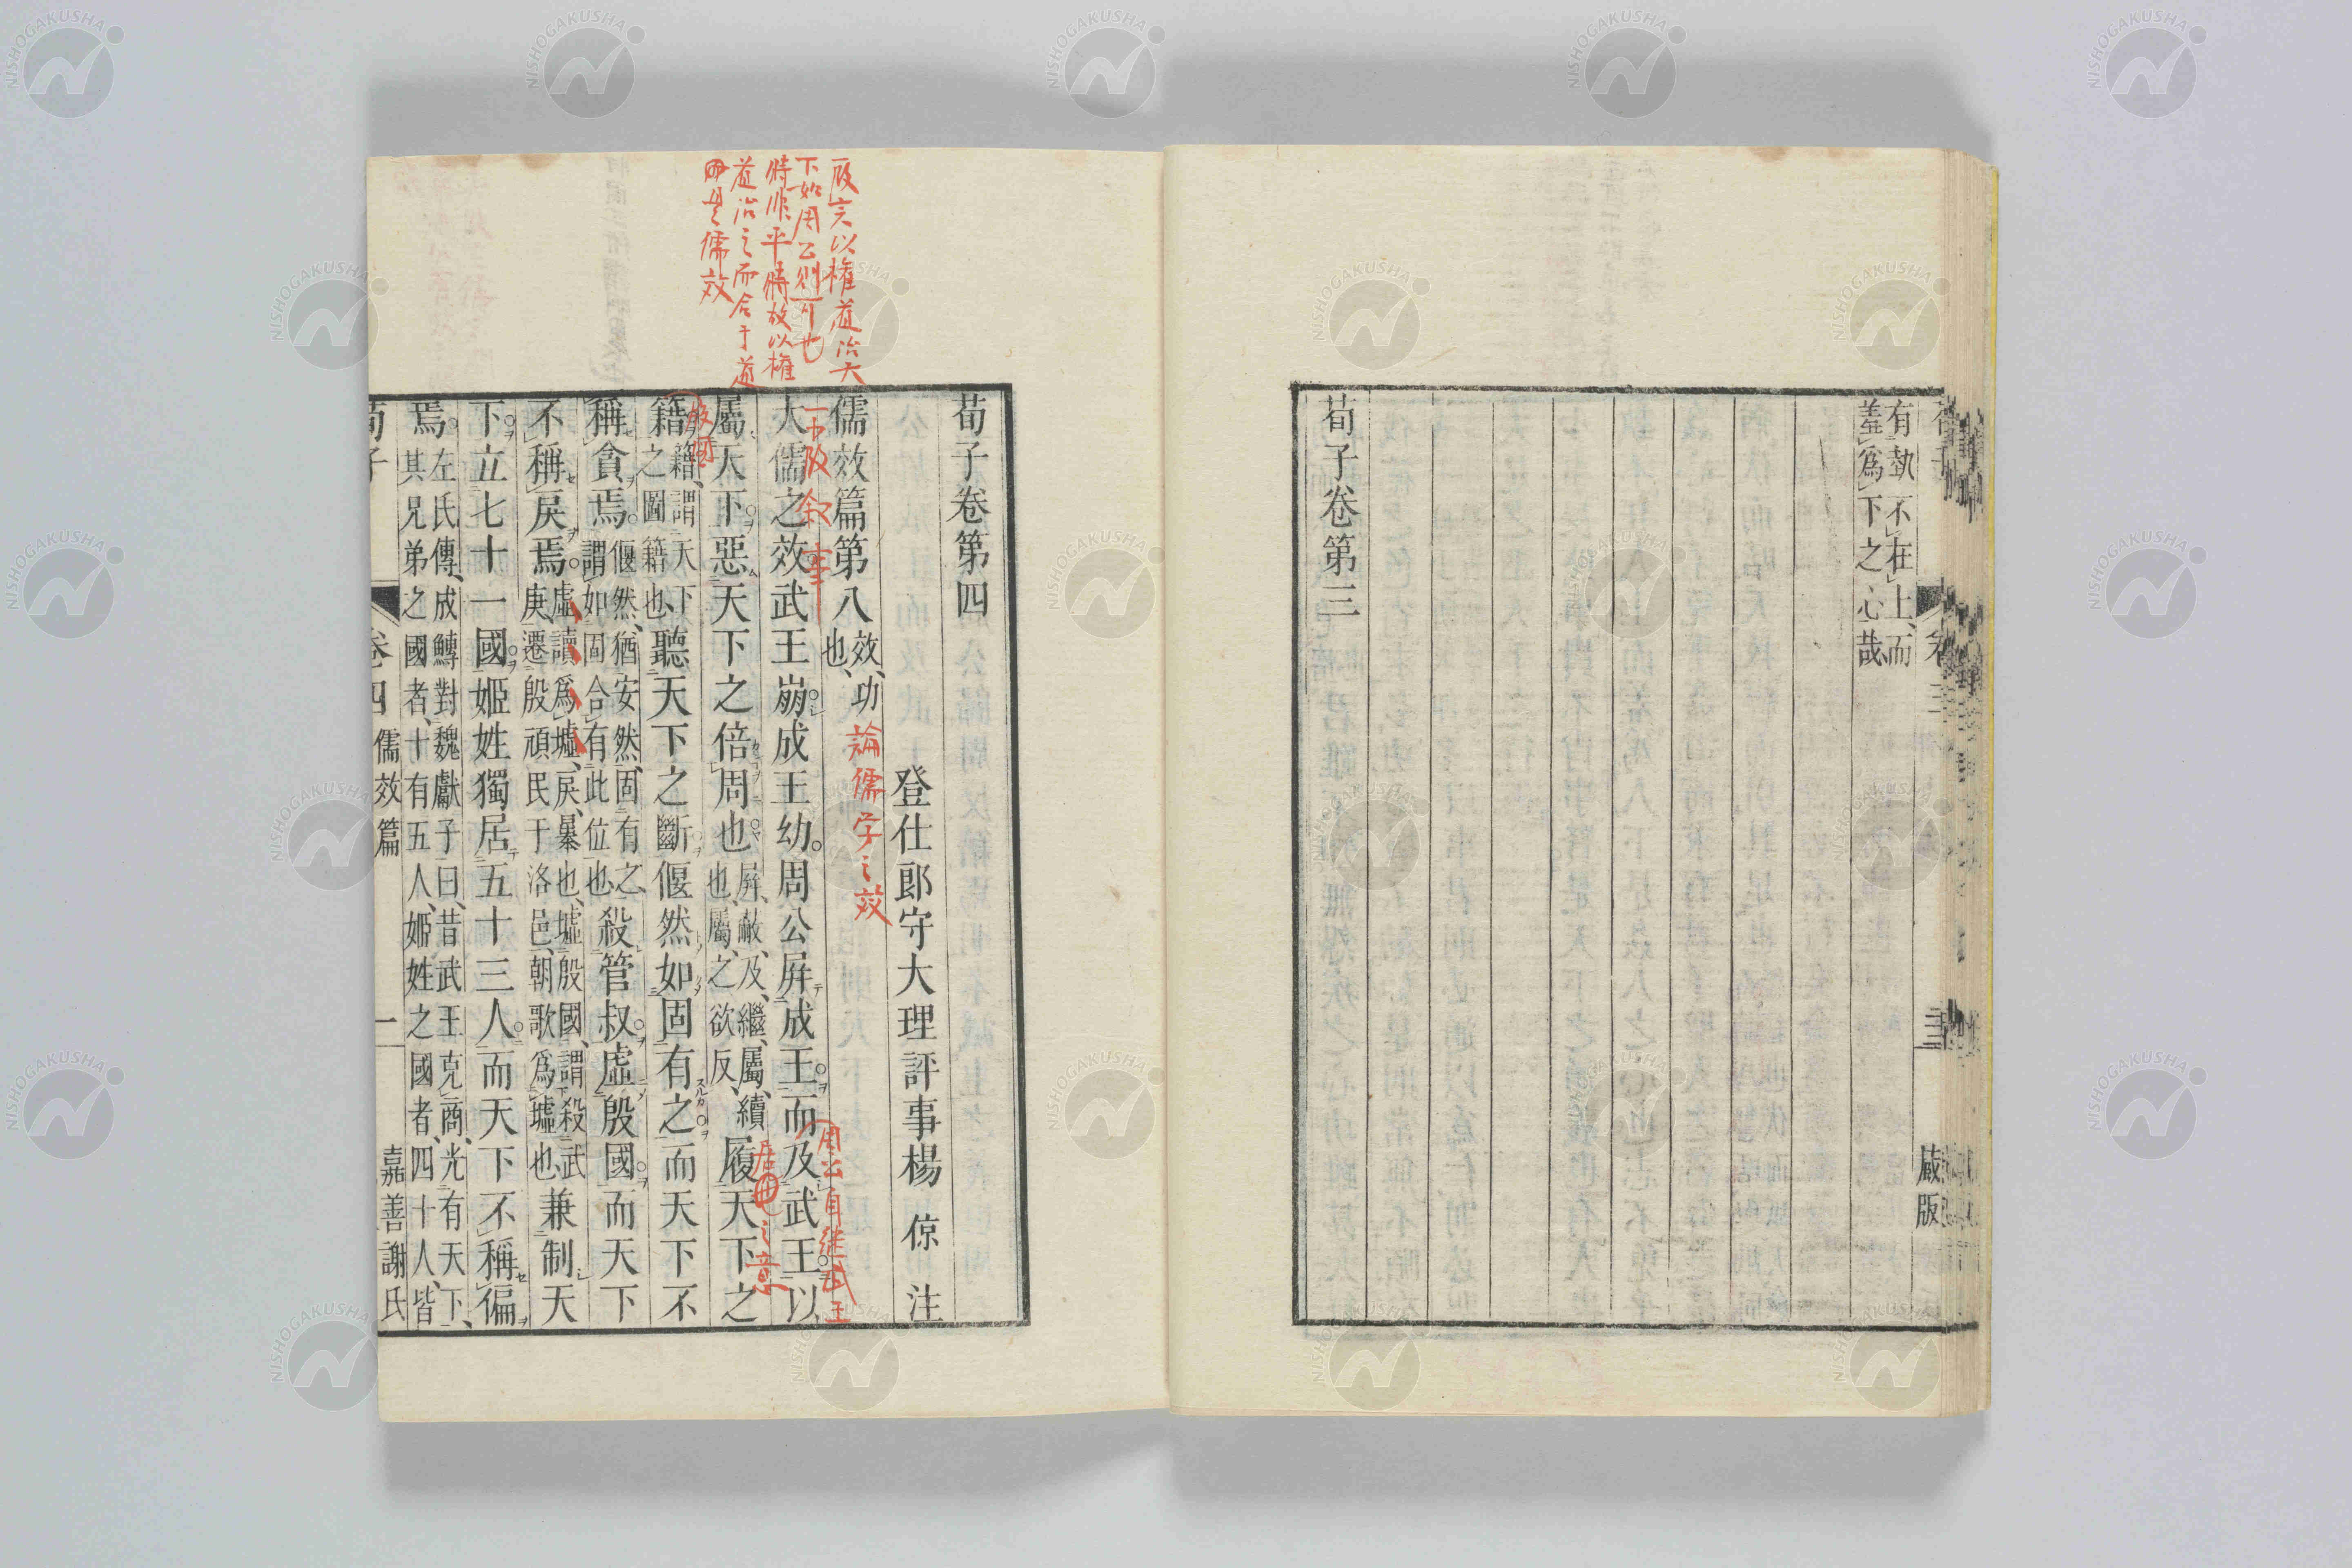 有埶不在上、而
羞爲下之心哉
荀子卷第三
藏版
荀子卷第四
登仕郎守大理評事楊 倞 注
儒效篇第八
效、功
也、
論儒字之效
大儒之效武王崩成王幼周公屏成王而及武王以
屬天下惡天下之倍周也
屏、蔽、及、繼、屬、續
也、屬、之欲反、
履天下之
籍
籍、謂天下
之圖籍也、
聽天下之斷偃然如固有之而天下不
稱貪焉
偃然、猶安然、固有之、
謂如固合有此位也、
殺管叔虛殷國而天下
不稱戾焉
虛、讀爲墟、戾、暴也、墟殷國、謂殺武
庚、遷殷頑民于洛邑、朝歌爲墟也、
兼制天
下立七十一國姬姓獨居五十三人而天下不稱偏
焉
左氏傳、成鱄對魏獻子曰、昔武王克商、光有天下、
其兄弟之國者、十有五人、姬姓之國者、四十人、皆
荀子
卷四
儒效篇
一
嘉善謝氏
下段叙事
周公自継武王
下如周公則可也
時非平時故以権
道治之而合于道
即是儒效